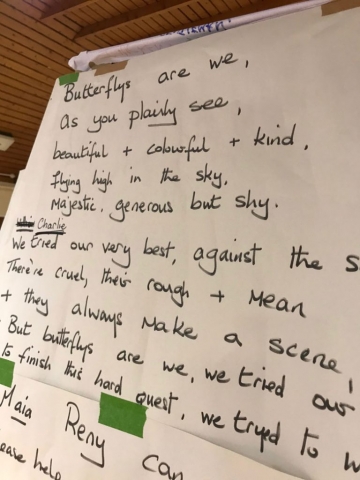 Butterflys are we,
As you plainly see,
beautiful + colourful + kind,
flying high in the sky,
Majestic, generous but shy.
Charlie
We tried our very best, against the s
There're cruel, their rough + Mean
+ they always make a scene,
But butterflys are we, we tried our
to finish this hard quest, we tryed to w
Maia Reny can
ease help